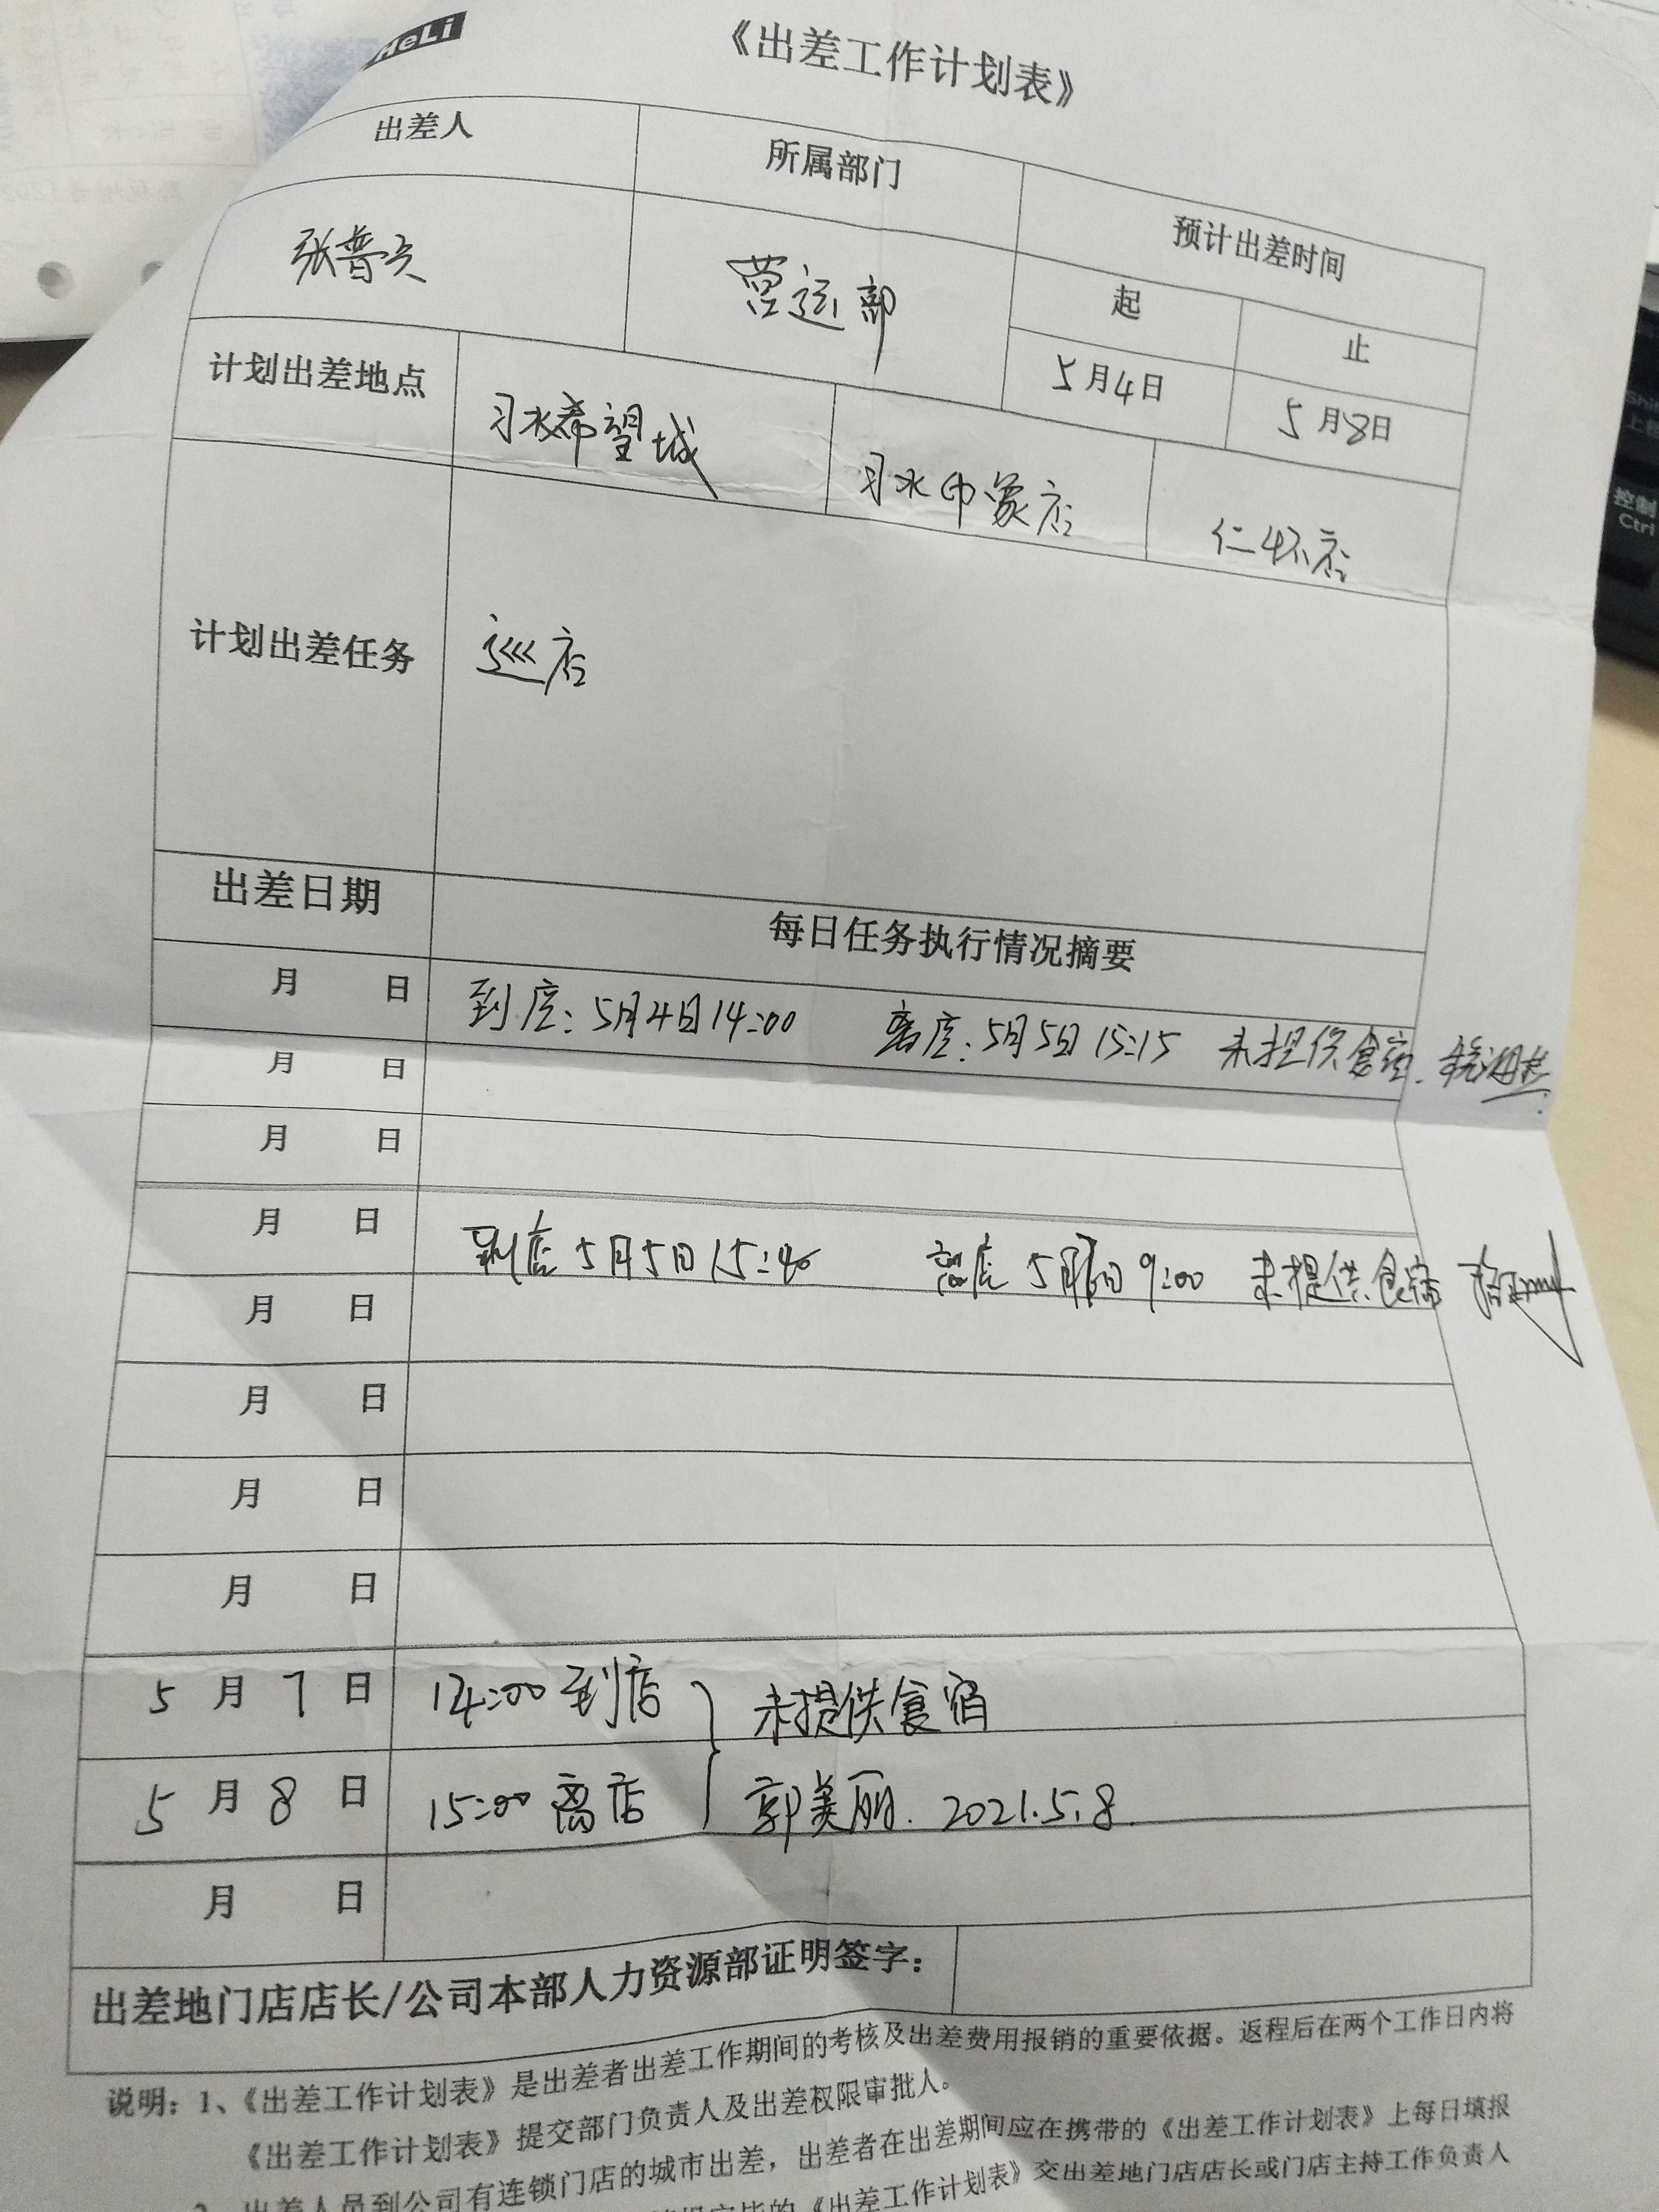 HeLi
《出差工作计划表》
出差人 所属部门 预计出差时间
起 止
张普兴 营运部 5月4日 5月8日
计划出差地点 习水希望城 习水印象店 仁怀店
计划出差任务 巡店
出差日期 每日任务执行情况摘要
月 日 到店:5月4日14:00 离店:5月5日15:15 未提供食宿.
月 日
月 日
月 日 到店5月5日15:40 离店5月 日9:00 未提供食宿
月 日
月 日
月 日
月 日
5月7日 14:00到店 未提供食宿
5月8日 15:00离店 郭美丽. 2021.5.8.
月 日
出差地门店店长/公司本部人力资源部证明签字:
说明:1、《出差工作计划表》是出差者出差工作期间的考核及出差费用报销的重要依据。返程后在两个工作日内将
《出差工作计划表》提交部门负责人及出差权限审批人。
2、出差人员到公司有连锁门店的城市出差,出差者在出差期间应在携带的《出差工作计划表》上每日填报
《出差工作计划表》交出差地门店店长或门店主持工作负责人
控制
Ctrl